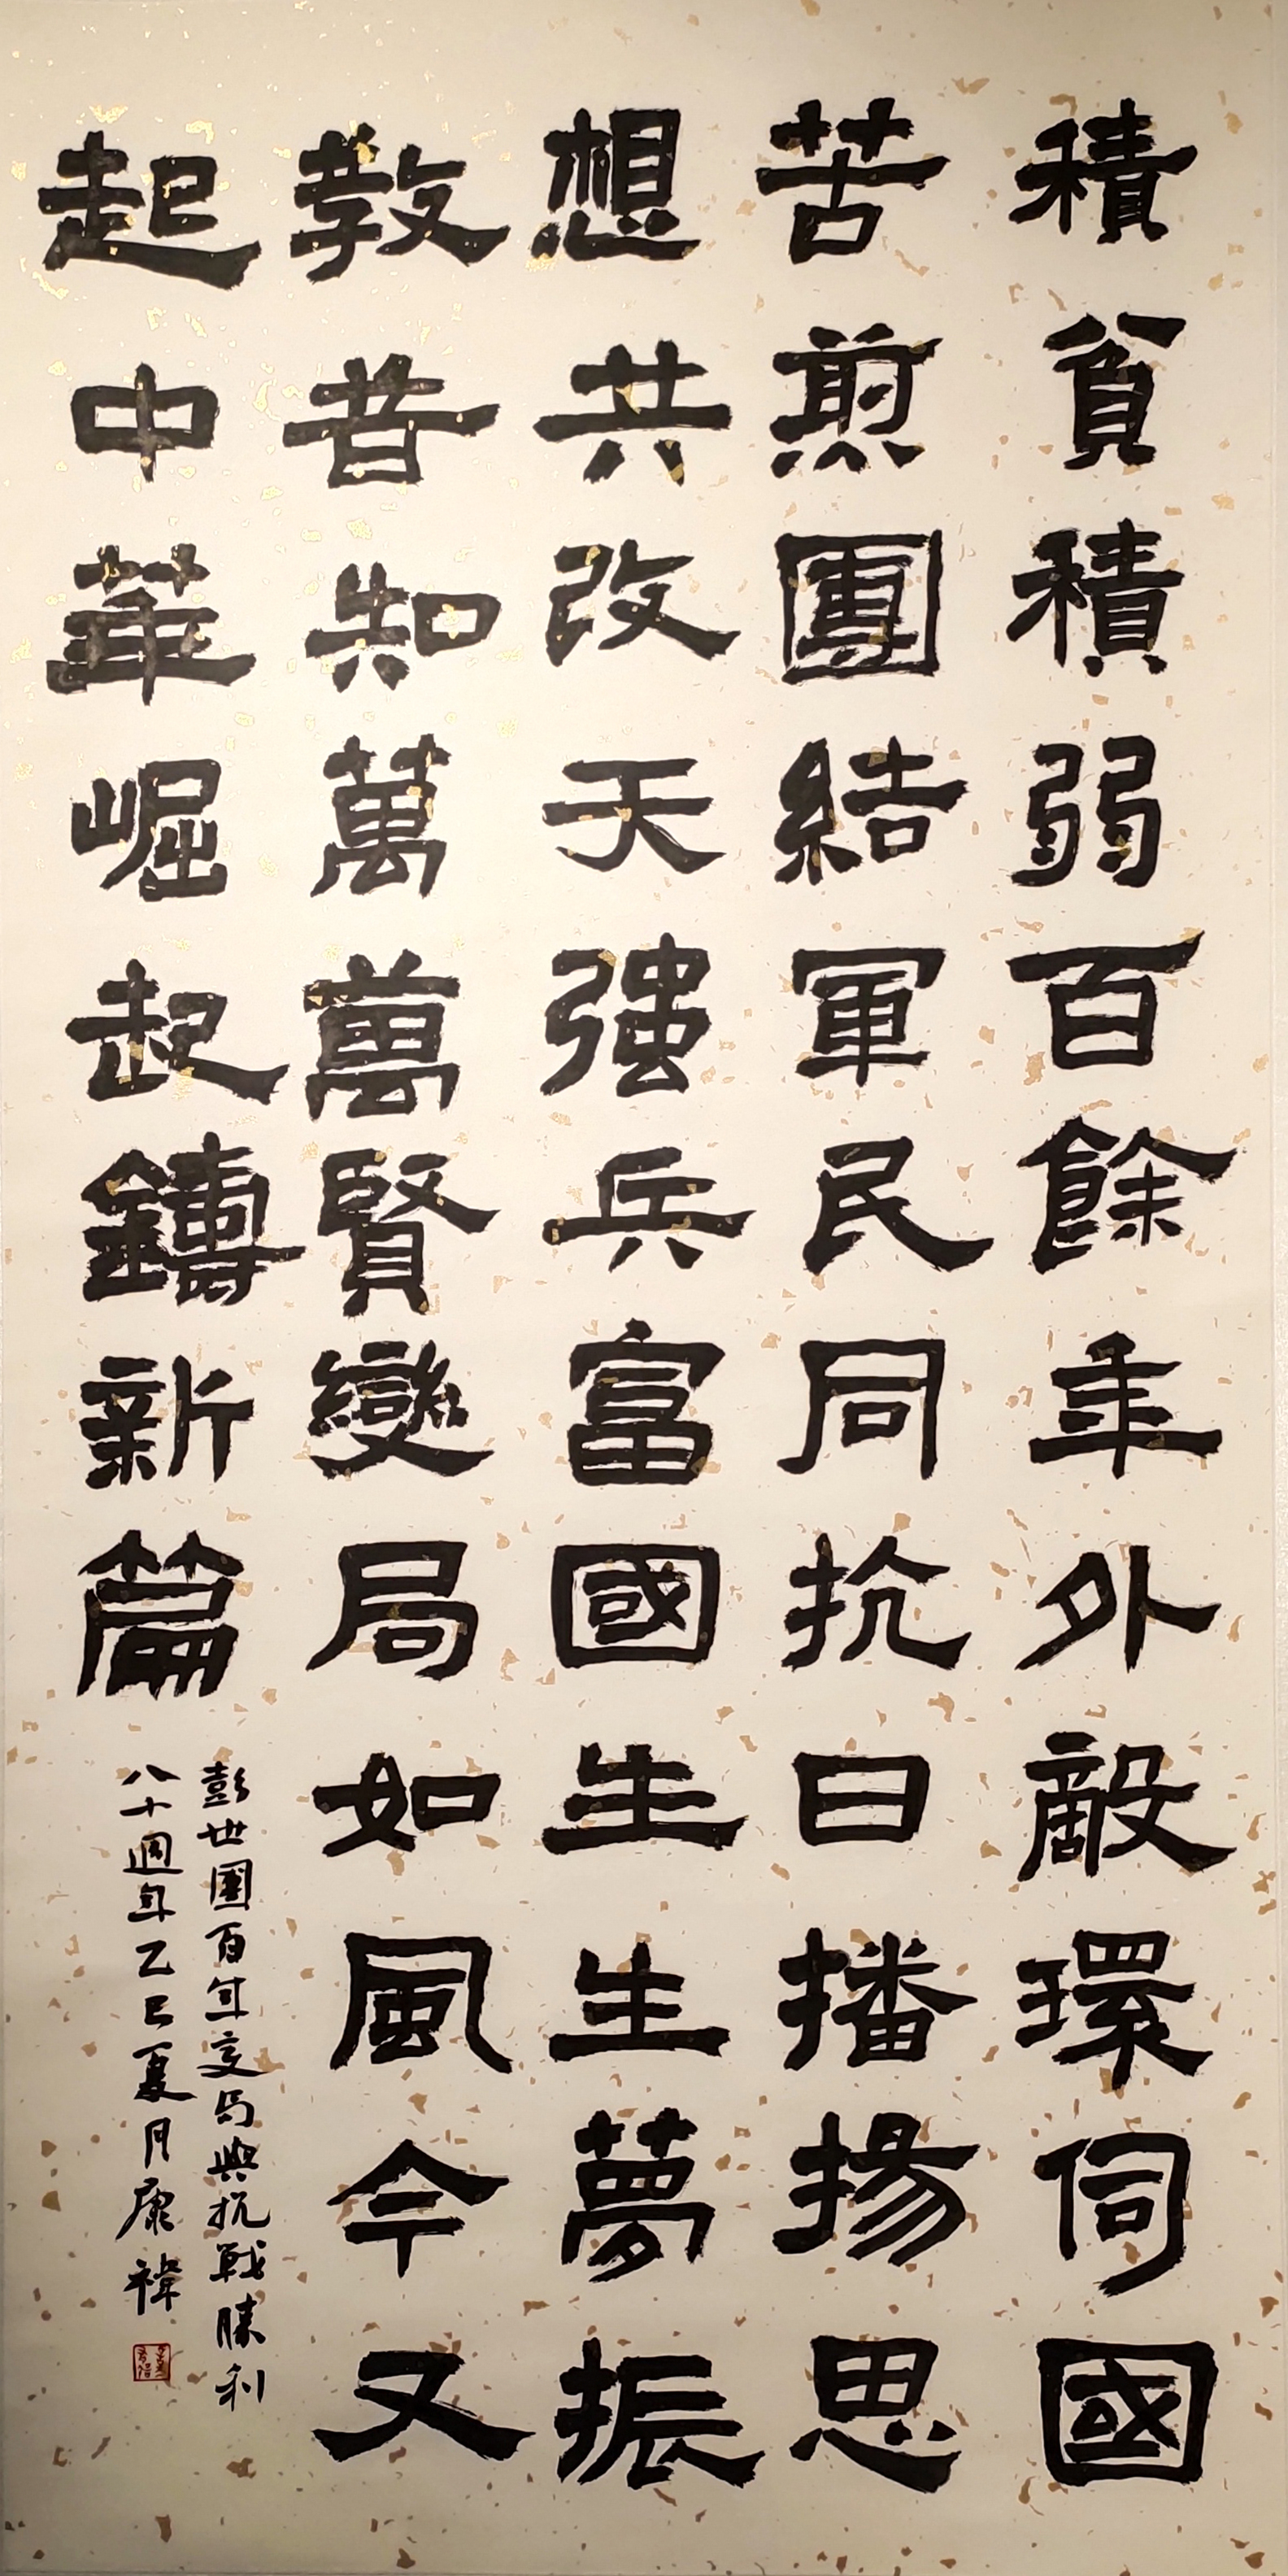 積貧積弱百餘年外敵環伺國
苦煎團結軍民同抗日播揚思
想共改天強兵富國生生夢振
教昔知萬萬賢變局如風今又
起中華崛起鑄新篇
彭世團百年變局與抗戰勝利
八十週年乙巳夏月康禕